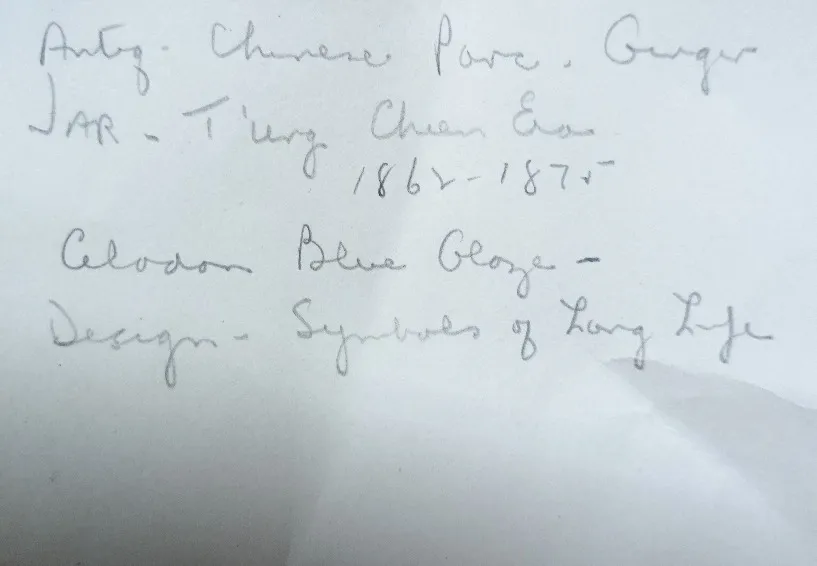 Antq. Chinese Porc. Ginger
JAR - T'ung Chien Era
1862-1875
Celadon Blue Glaze -
Design - Symbols of Long Life